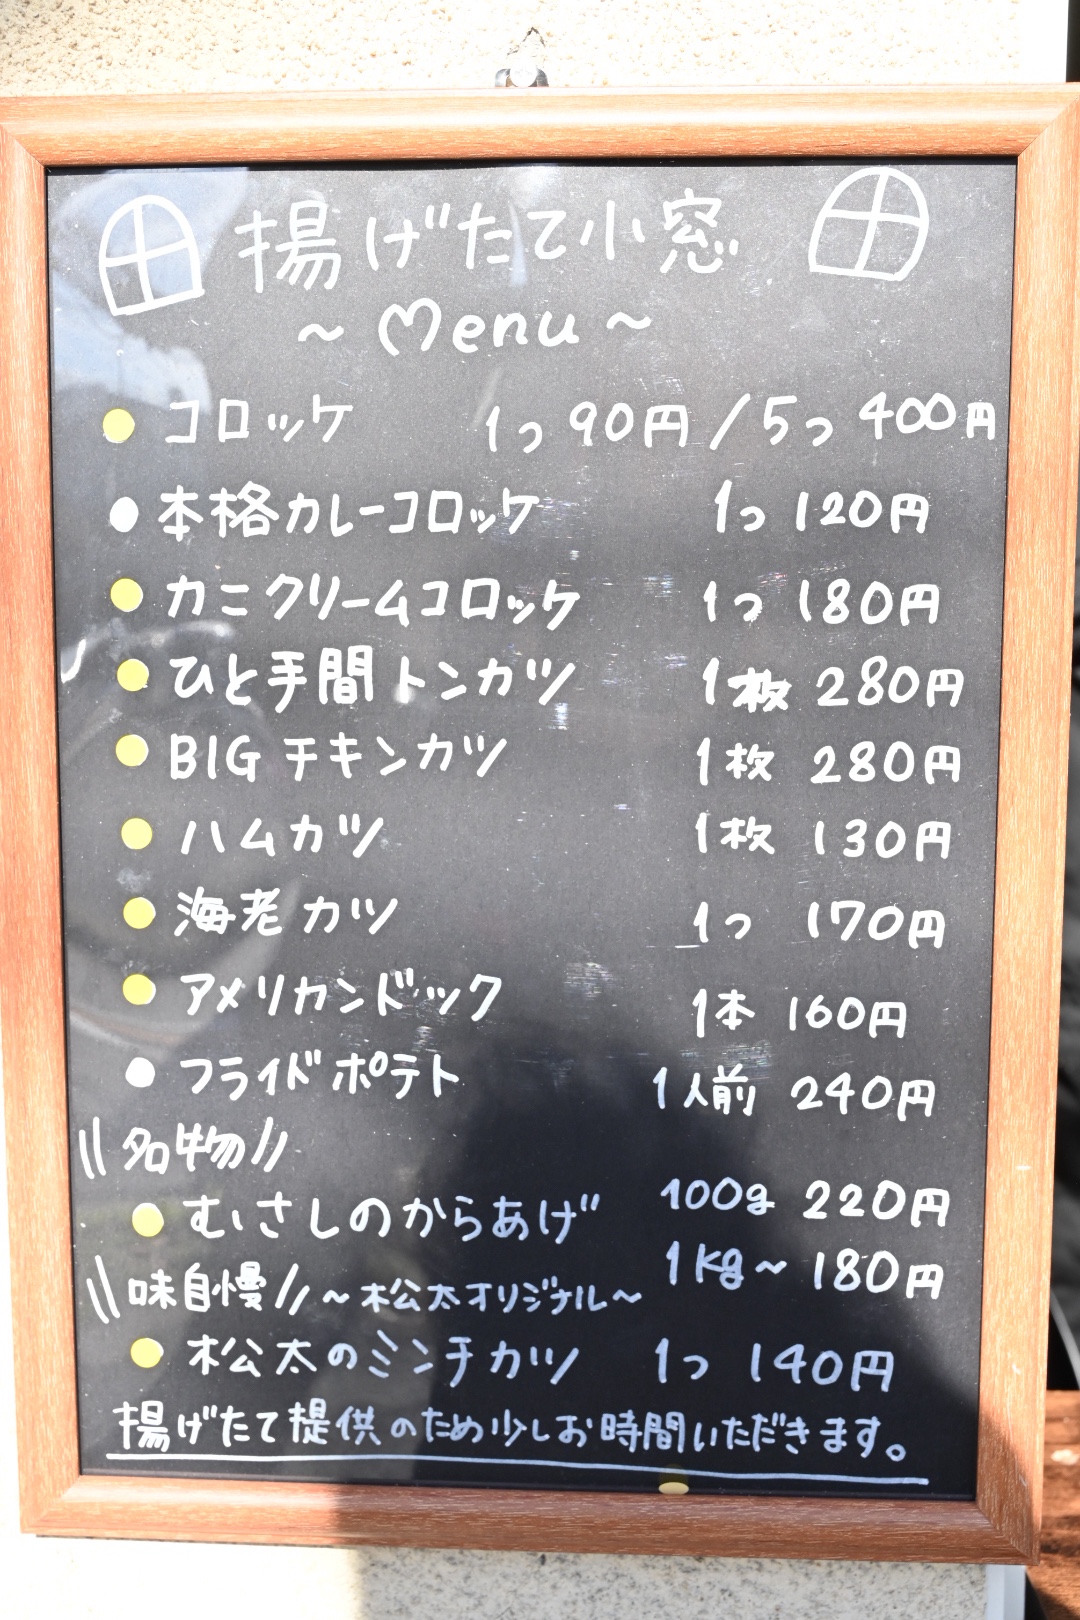 揚げたて小窓
~ Menu ~
コロッケ 1つ 90円 / 5つ 400円
本格カレーコロッケ 1つ 120円
カニクリームコロッケ 1つ 180円
ひと手間トンカツ 1枚 280円
BIGチキンカツ 1枚 280円
ハムカツ 1枚 130円
海老カツ 1つ 170円
アメリカンドック 1本 160円
フライドポテト 1人前 240円
\\名物//
むさしのからあげ 100g 220円
1kg~ 180円
\\味自慢// ~松太オリジナル~
松太のミンチカツ 1つ 140円
揚げたて提供のため少しお時間いただきます。